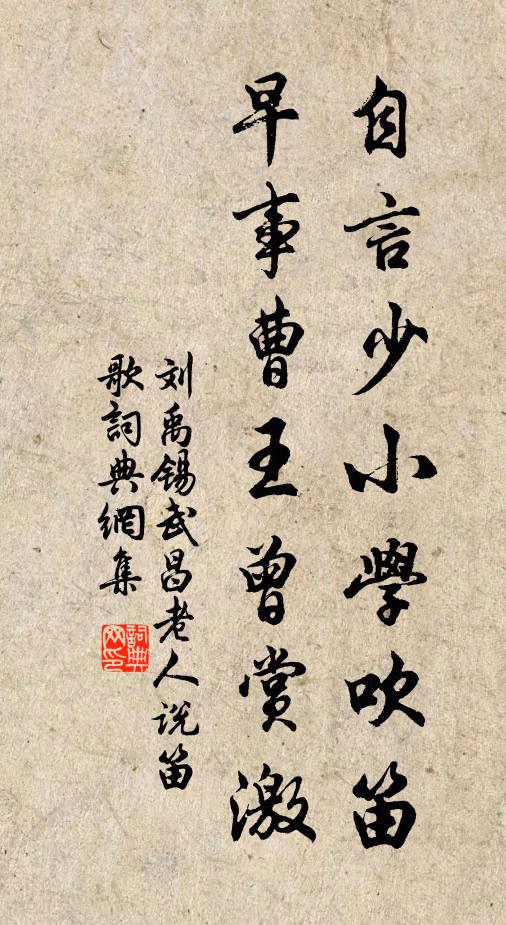 自言少小學吹笛
早事曹王曾賞激
刘禹锡武昌老人说笛
歌詞典網集
詞典
网印